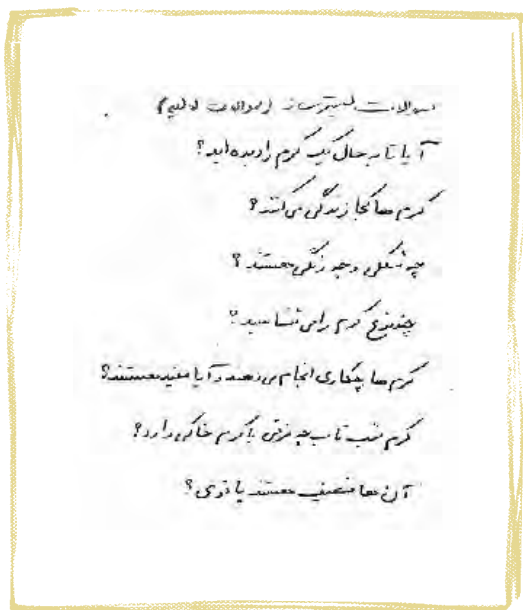 سوالات بیشتر از سوالات اولیه
آیا تا به حال یک کرم را دیده‌اید؟
کرم ها کجا زندگی می‌کنند؟
چه شکلی و چه رنگی هستند؟
چند نوع کرم را می شناسید؟
کرم ها چکاری انجام می‌دهند و آیا مفید هستند؟
کرم شب تاب چه فرقی با کرم خاکی دارد؟
آن ها ضعیف هستند یا قوی؟